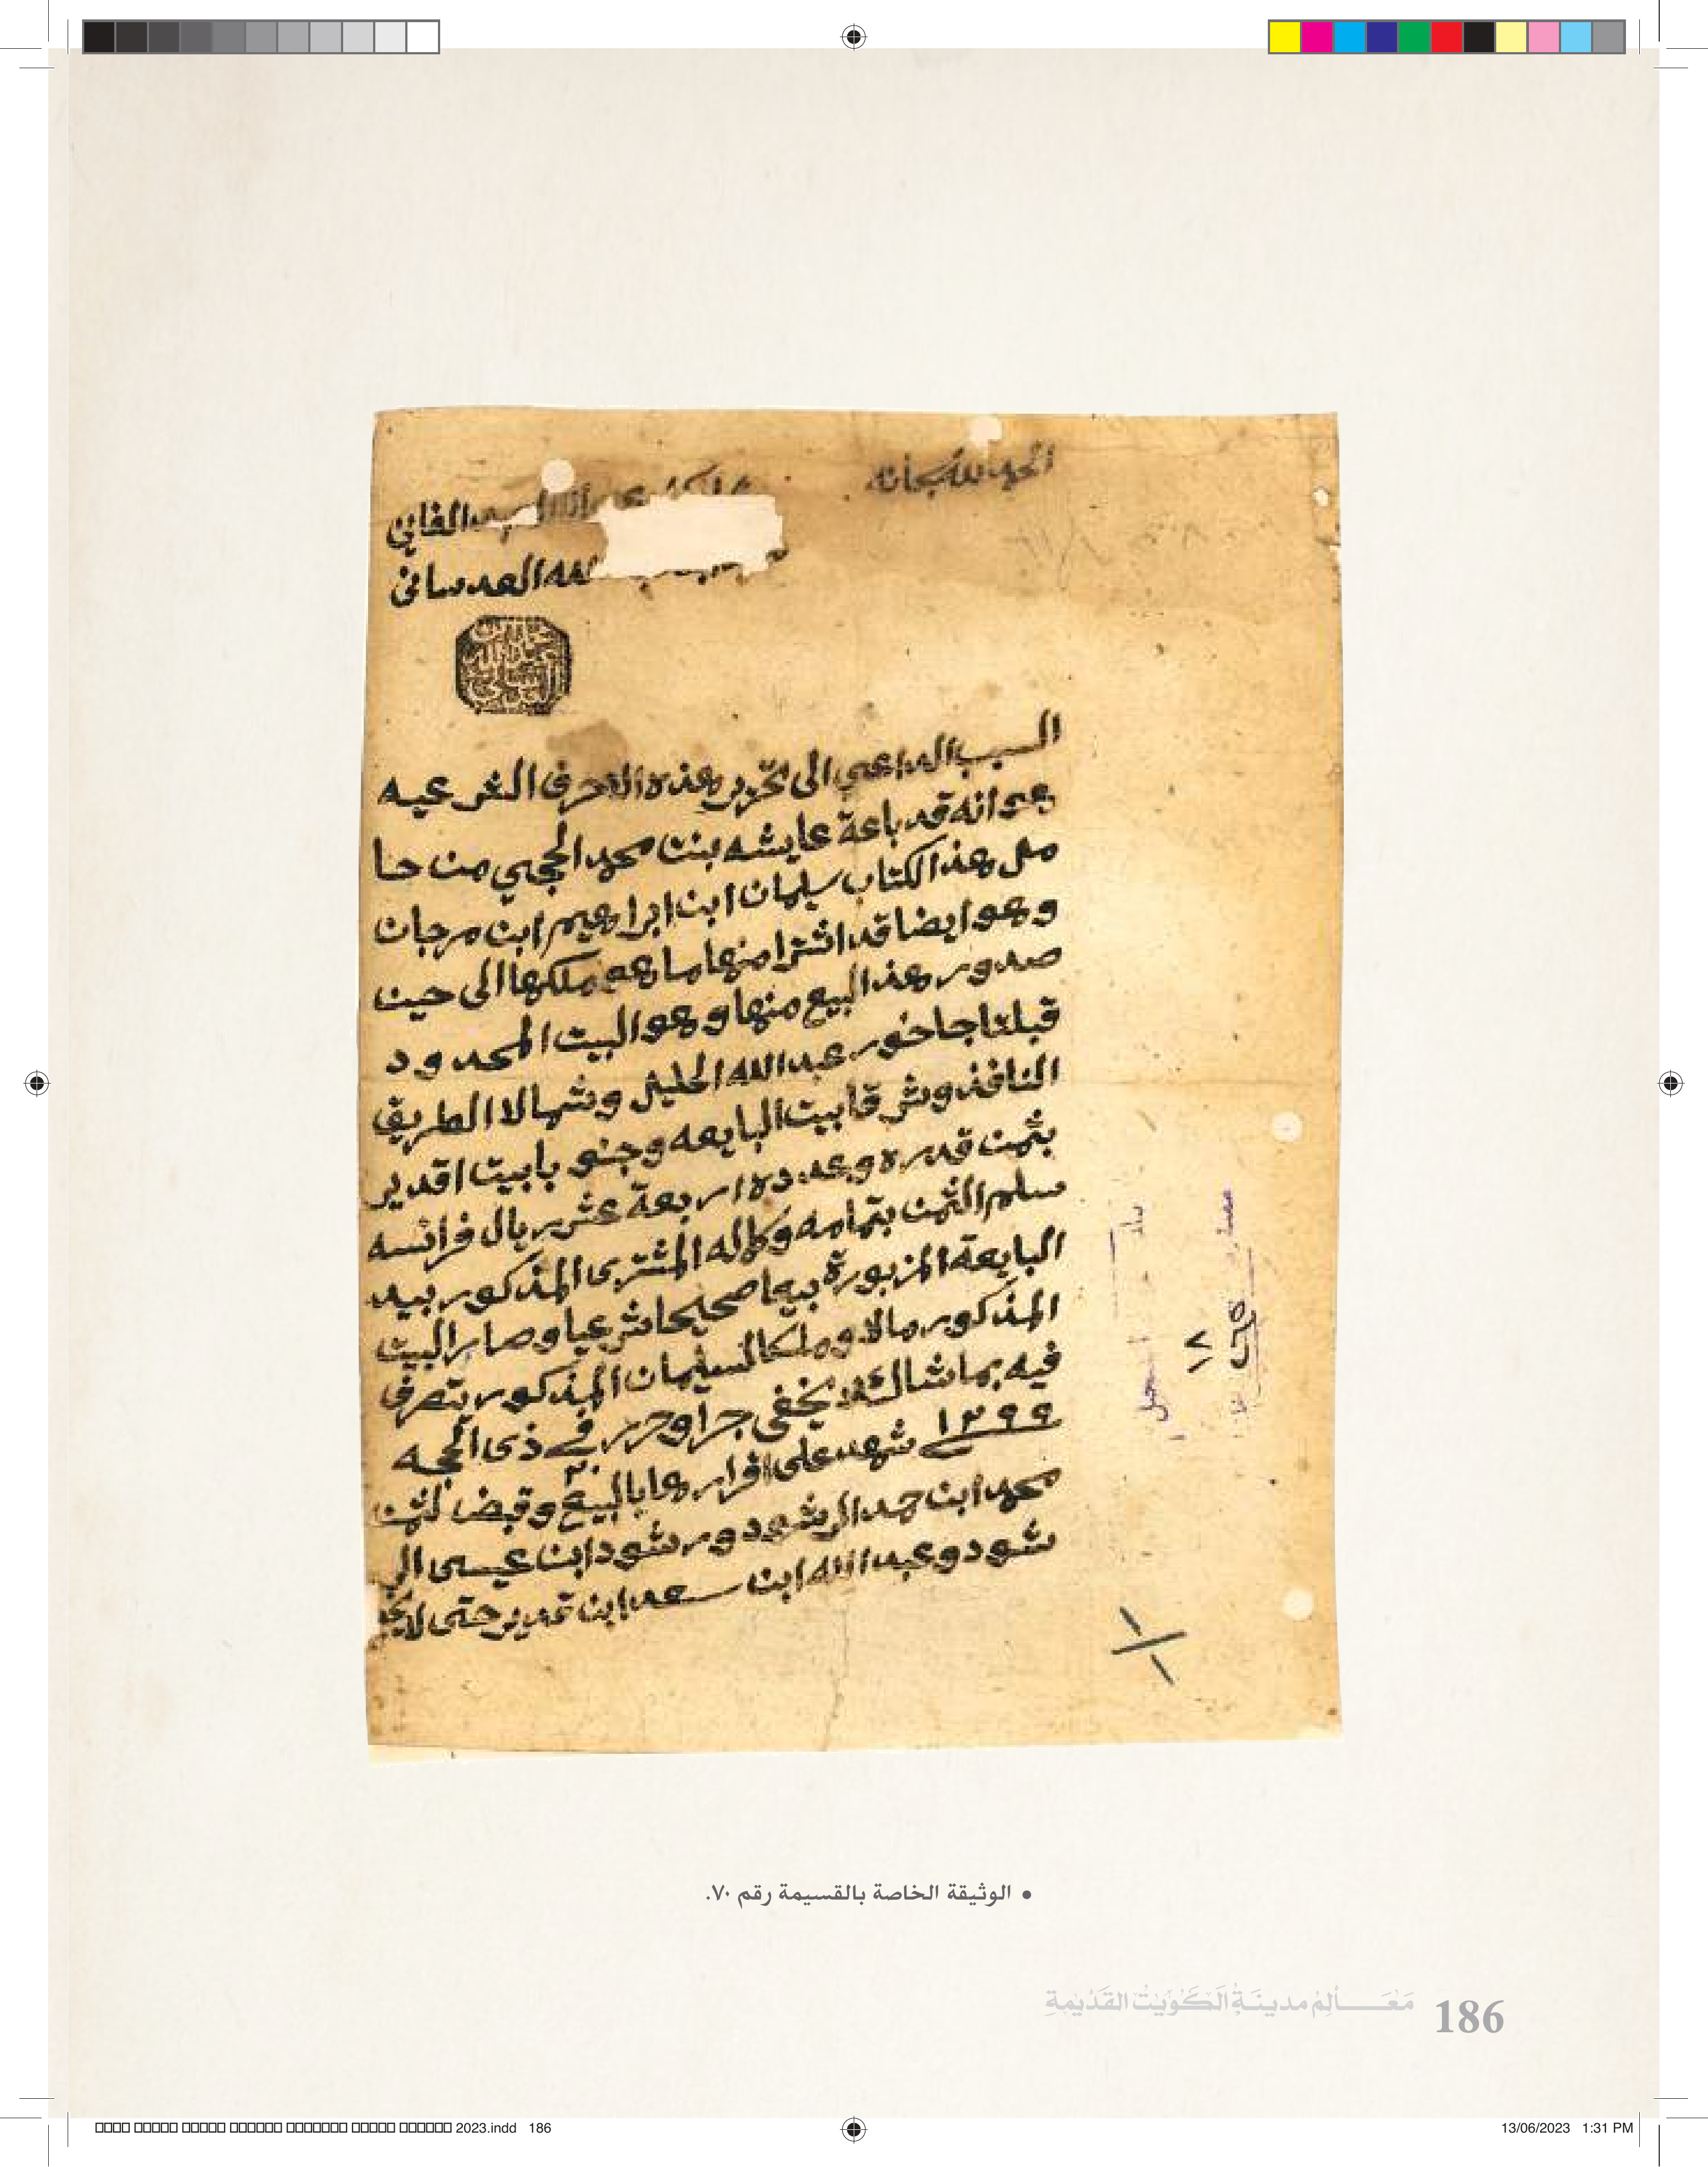 الحمد لله سبحانه
العبد الفاني
الله العدساني
السبب الداعي الى تحرير هذه الاحرف الشرعيه
هو انه قد باعة عايشه بنت محمد الحجي من حا
مل هذ الكتاب سليمان ابن ابراهيم ابن مرجان
وهو ايضا قد اشترا منها ما هو ملكها الى حين
صدور هذ البيع منها وهو البيت المحدود
قبلتا جاخور عبد الله الخليل وشمالا الطريق
النافذ وشرقا بيت البايعه وجنوبا بيت اقدير
بثمن قدره وعدده اربعة عشر ريال فرانسه
سلم الثمن بتمامه وكماله المشتري المذكور بيد
البايعة المزبورة بيعا صحيحا شرعيا وصار البيت
المذكور مالا وملكا لسليمان المذكور يتصرف
فيه بما شا لئلا يخفى جرا وحرر في ٢٠ ذي الحجه
١٢٩٩ شهد على اقرارها بالبيع وقبض الثمن
محمد ابن حمد الرشود ورشود ابن عيسى الر
شود وعبد الله ابن سعد ابن قدير حتى لا يخ
١٨
• الوثيقة الخاصة بالقسيمة رقم ٧٠.
مَعَالِم مدينَةِ الكُوَيْت القَدْيمَةِ 186
2023.indd 186
13/06/2023 1:31 PM